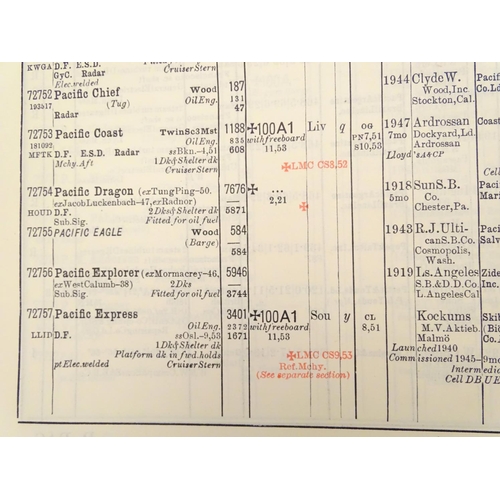 KWGA D.F. E.S.D. Cruiser Stern 1944 Clyde W. Pacifi
GyC. Radar Wood, Inc Co. Ld
Elec.welded Stockton, Cal.
72752 Pacific Chief Wood 187
193517 (Tug) Oil Eng. 131
Radar 47
72753 Pacific Coast TwinSc3Mst 1188 ✠100A1 Liv q OG 1947 Ardrossan Coast
181092 Oil Eng. 835 with freeboard PN7,51 7mo Dockyard, Ld.
MFTK D.F. E.S.D. Radar ssBkn.-4,51 608 11,53 s10,53 Ardrossan
Mchy. Aft 1Dk & Shelter dk Lloyd's A & CP
Cruiser Stern ✠LMC CS3,52
72754 Pacific Dragon (exTungPing-50, 7676 ✠ ... 1918 Sun S.B.
exJacobLuckenbach-47, exRadnor) 2,21 5mo Co.
HOUD D.F. 2Dks & Shelter dk 5871 ✠ Chester, Pa.
Sub.Sig. Fitted for oil fuel
72755 PACIFIC EAGLE Wood 584 1943 R.J. Ulti-
(Barge) — can S.B. Co.
584 Cosmopolis,
Wash.
72756 Pacific Explorer (exMormacrey-46, 5946 1919 Ls. Angeles
exWestCalumb-38) 2Dks — S.B. & D.D. Co.
Sub.Sig. Fitted for oil fuel 3744 L. Angeles Cal
72757 Pacific Express 3401 ✠100A1 Sou y CL Kockums
Oil Eng. 2372 with freeboard 8,51 M.V. Aktieb.
LLID D.F. ssOsl.-9,53 1671 11,53 Malmö
1Dk & Shelter dk Launched 1940
Platform dk in fwd. holds ✠LMC CS9,53 Commissioned 1945-
pt Elec.welded Cruiser Stern Ref.Mchy. Intermedi
(See separate section) Cell DB, UE